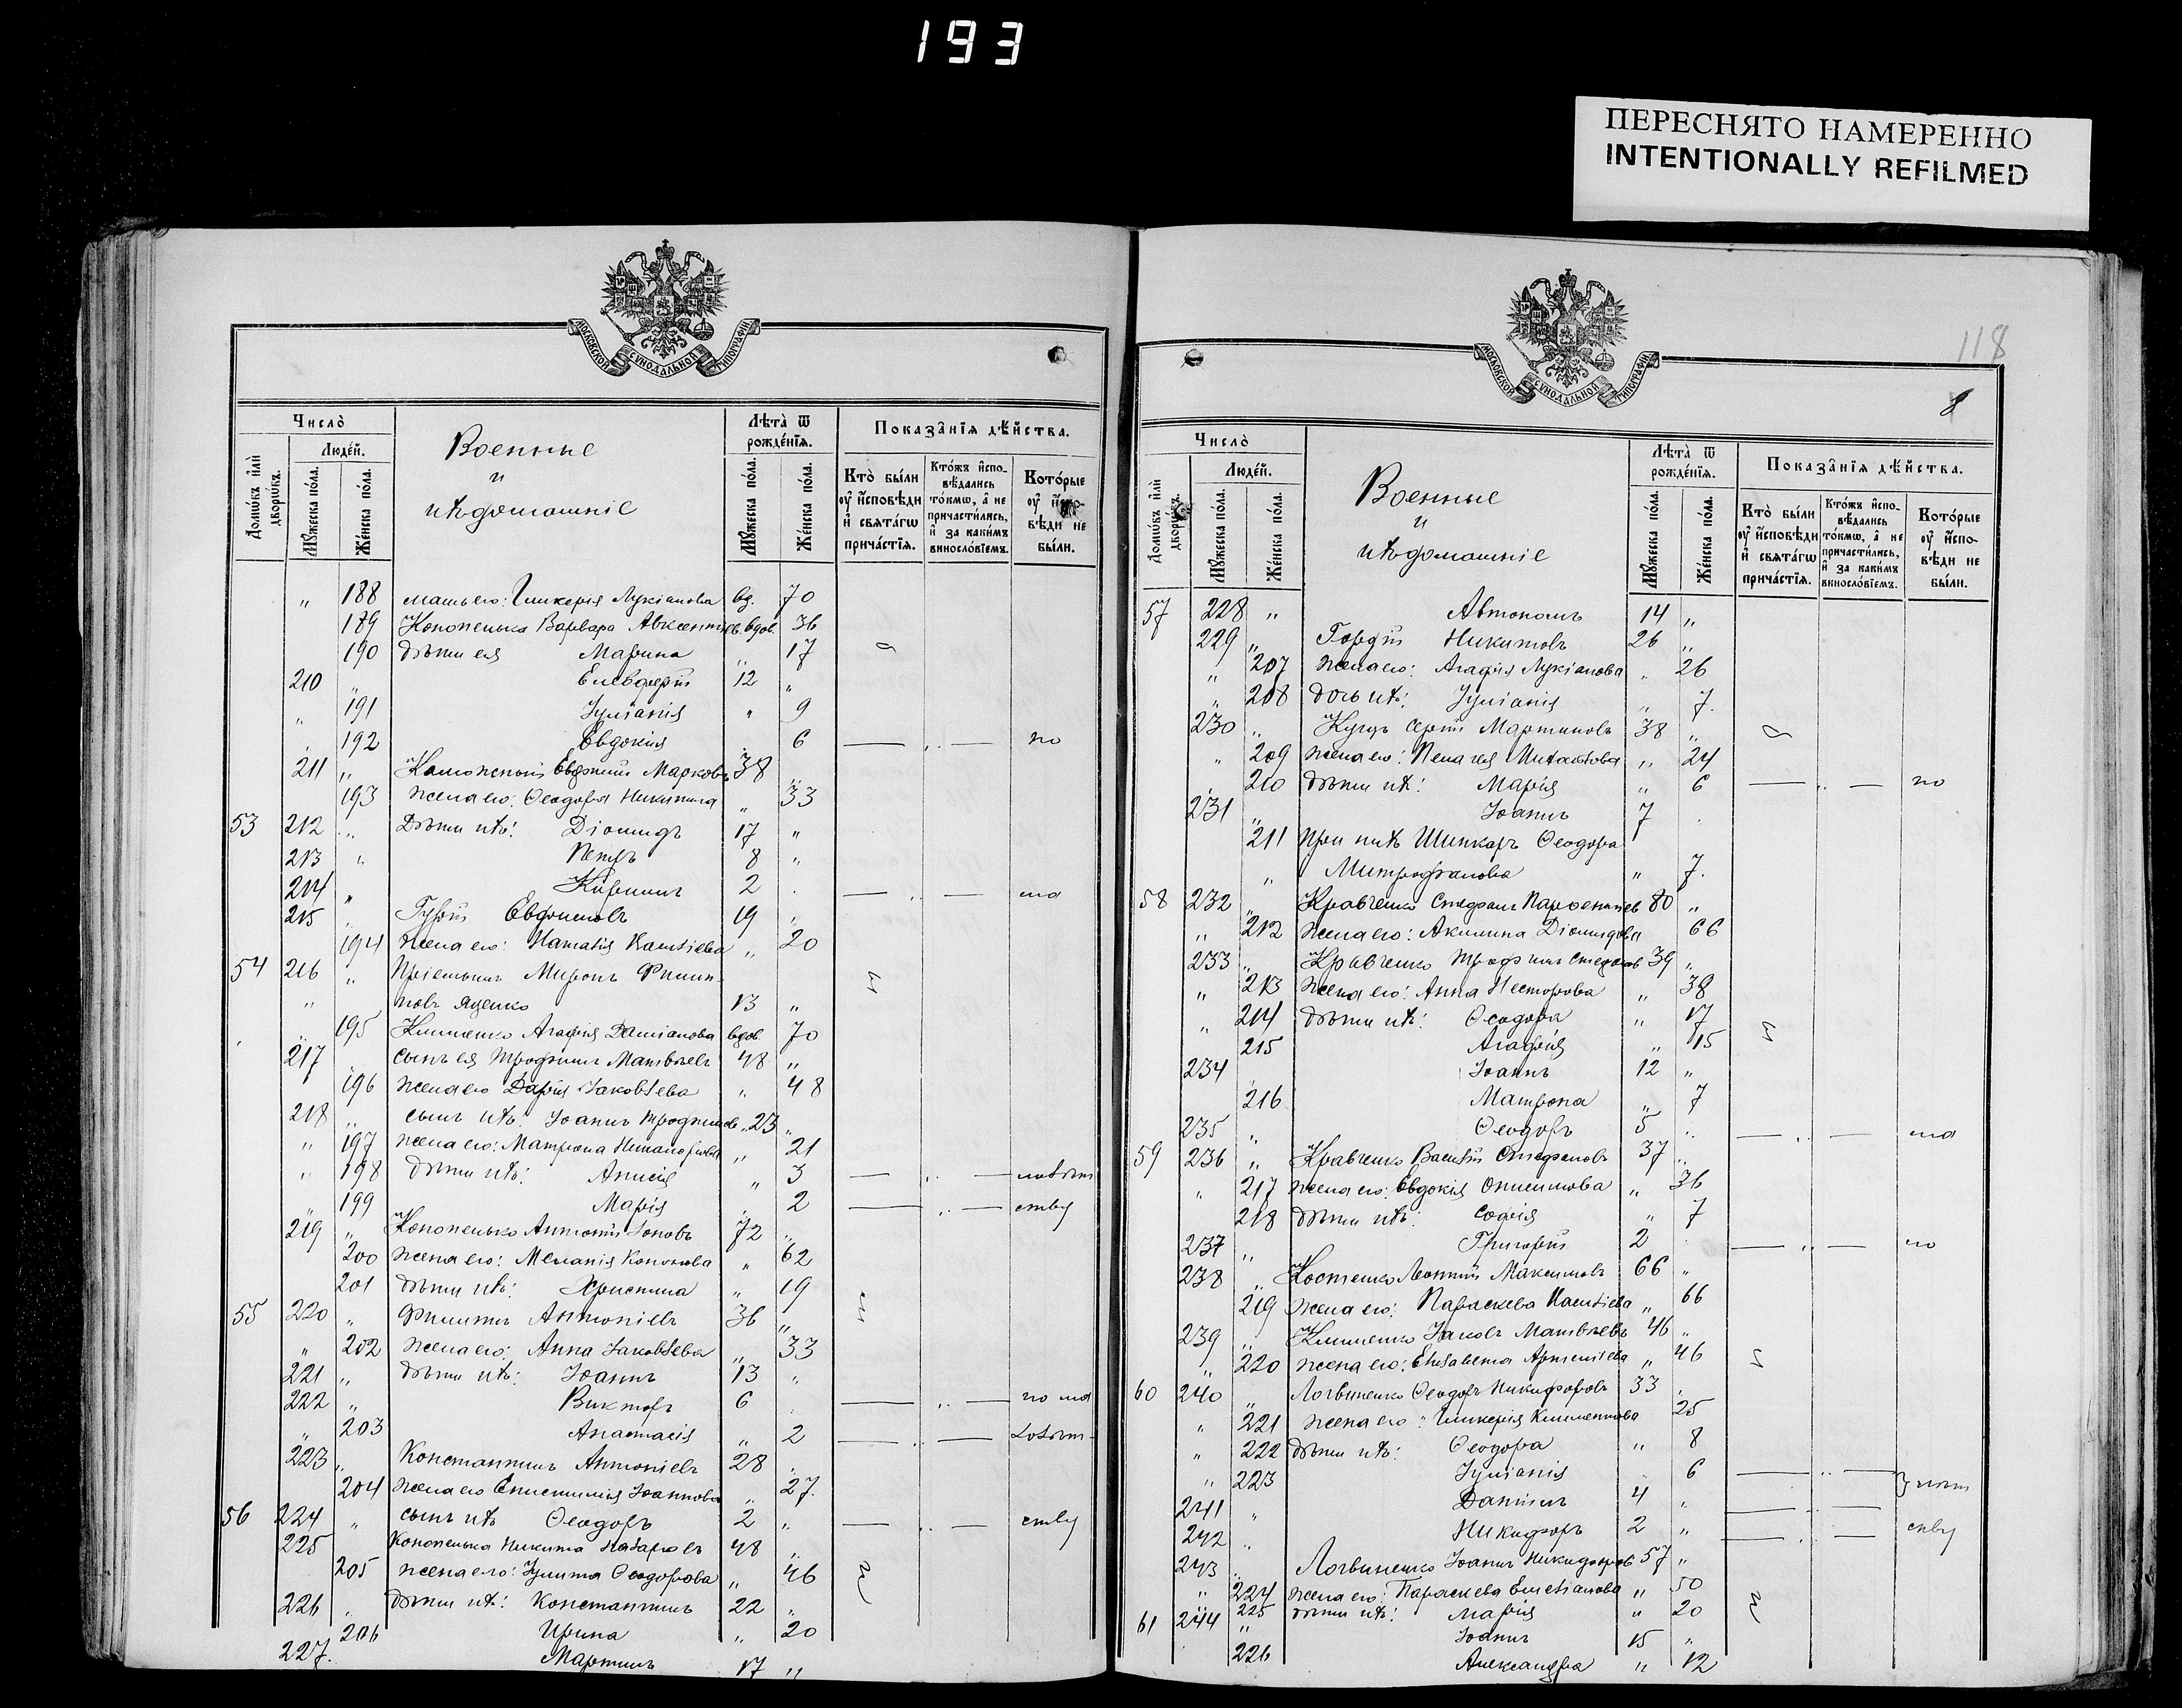 193
ПЕРЕСНЯТО НАМЕРЕННО
INTENTIONALLY REFILMED
МОСКОВСКОЙ СѴНОДАЛЬНОЙ ТИПОГРАФІИ
Число̀
Люде́й.
Домѡ́въ и҆лѝ дворѡ́въ.
Мꙋ́жеска по́ла.
Же́нска по́ла.
Военные
и
ихъ домашніе
Лѣта̀ ѿ рожде́нїѧ.
Мꙋ́жеска по́ла.
Же́нска по́ла.
Показа̂нїѧ дѣ́йства.
Кто̀ бы́ли оу҆ и҆́сповѣди и҆ свѧта́гѡ прича́стїѧ.
Кто́жъ и҆спо-вѣ́дались то́кмѡ, а҆ не причасти́лись, и҆ за каки́мъ винослові́емъ.
Кото́рые оу҆ и҆́спо-вѣди не бы́ли.
" 188 мать его: Гликерія Лукіанова вд. 70
189 Кононенька Варвара Авксентіев. вдов. 36
190 Дѣти ея Марина " 17
210 " Елевферій 12 "
" 191 Іуліанія " 9
192 Евдокія 6 — " — по
211 " Евфимій Марковъ 38
193 жена его: Ѳеодора Никитина " 33
53 212 " Дѣти ихъ: Діомидъ 17 "
213 " Петръ 8 "
214 " Кирилъ 2 — " — ма
215 Гурій Евфимовъ 19 "
194 жена его: Наталія Васильева " 20
54 216 " Пріемышъ Миронъ Филип-
" повъ Яценко 13 "
195 Клименко Агафія Даміанова вдов. 70
217 сынъ ея Трофимъ Матвѣевъ 48 "
196 жена его Дарія Іаковлева " 48
218 " сынъ ихъ: Іоаннъ Трофимов. 23 "
" 197 жена его: Матрона Никанорова " 21
" 198 дѣти ихъ: Анисія " 3 — " —
199 Марія 2 — " — ству
219 " Кононенько Антоній Іоновъ 72 "
200 жена его: Меланія Кононова " 62
201 дѣти ихъ: Христина " 19
55 220 " Филиппъ Антоніевъ 36 "
" 202 жена его: Анна Іаковлева " 33
221 " дѣти ихъ: Іоаннъ 13 "
222 " Викторъ 6 — " — по ма
" 203 Анастасія " 2 — " —
223 " Константинъ Антоніевъ 28
204 жена его Епистимія Іоаннова " 27.
56 224 " сынъ ихъ Ѳеодоръ 2 " — " — ству
225 Кононенька Никита Назаровъ 48 "
205 жена его: Іулита Ѳеодорова " 46
226 " Дѣти ихъ: Константинъ 22 "
206 Ирина " 20
227. Мартинъ 17 "
118
8
МОСКОВСКОЙ СѴНОДАЛЬНОЙ ТИПОГРАФІИ
Число̀
Люде́й.
Домѡ́въ и҆лѝ дворѡ́въ.
Мꙋ́жеска по́ла.
Же́нска по́ла.
Военные
и
ихъ домашніе
Лѣта̀ ѿ рожде́нїѧ.
Мꙋ́жеска по́ла.
Же́нска по́ла.
Показа̂нїѧ дѣ́йства.
Кто̀ бы́ли оу҆ и҆́сповѣди и҆ свѧта́гѡ прича́стїѧ.
Кто́жъ и҆спо-вѣ́дались то́кмѡ, а҆ не причасти́лись, и҆ за каки́мъ винослові́емъ.
Кото́рые оу҆ и҆́спо-вѣди не бы́ли.
57 228 " Автономъ 14 "
229 " Гордій Никитовъ 26 "
" 207 жена его: Агафія Лукіанова " 26
" 208 дочь ихъ: Іуліанія " 7.
230 " Сергій Мартиновъ 38 "
" 209 жена его: Пелагея Михайлова " 24
210 дѣти ихъ: Марія " 6 — " — по
231 " Іоаннъ 7
211 при нихъ Шинкарь Ѳеодора
" Митрофанова " 7.
58 232 " Кравченко Стефанъ Парѳеніев 80 "
" 212 жена его: Акилина Діомидова 66
233 " Кравченко Трофимъ Стефанов 39 "
" 213 жена его: Анна Несторова " 38
" 214 дѣти ихъ: Ѳеодора " 17
215 Агафія " 15
234 Іоаннъ 12 "
216 Матрона " 7
235 " Ѳеодоръ 5 " — " — ма
59 236 " Кравченко Василій Стефановъ 37 "
" 217 жена его: Евдокія Онисимова " 36
218 дѣти ихъ: Софія " 7
237 " Григорій 2 — " — ло
238 " Костенко Леонтій Максимовъ 66 "
219 жена его: Параскева Васильева " 66
239 " Клименко Іаковъ Матвѣевъ 46 "
" 220 жена его: Елизавета Артемьева " 46
60 240 " Логвиненко Ѳеодоръ Никифоровъ 33 "
" 221 жена его: Гликерія Климентова 25
" 222 дѣти ихъ: Ѳеодора " 8
" 223 Іуліанія " 6 — " —
241 " Даніилъ 4 " — " —
242 " Никифоръ 2 " — " — ству
243 " Логвиненко Іоаннъ Никифоров 57 "
" 224 жена его: Параскева Емеліанова " 50
225 дѣти ихъ: Марія " 20
61 244 " Іоаннъ 15 "
226 Александра " 12